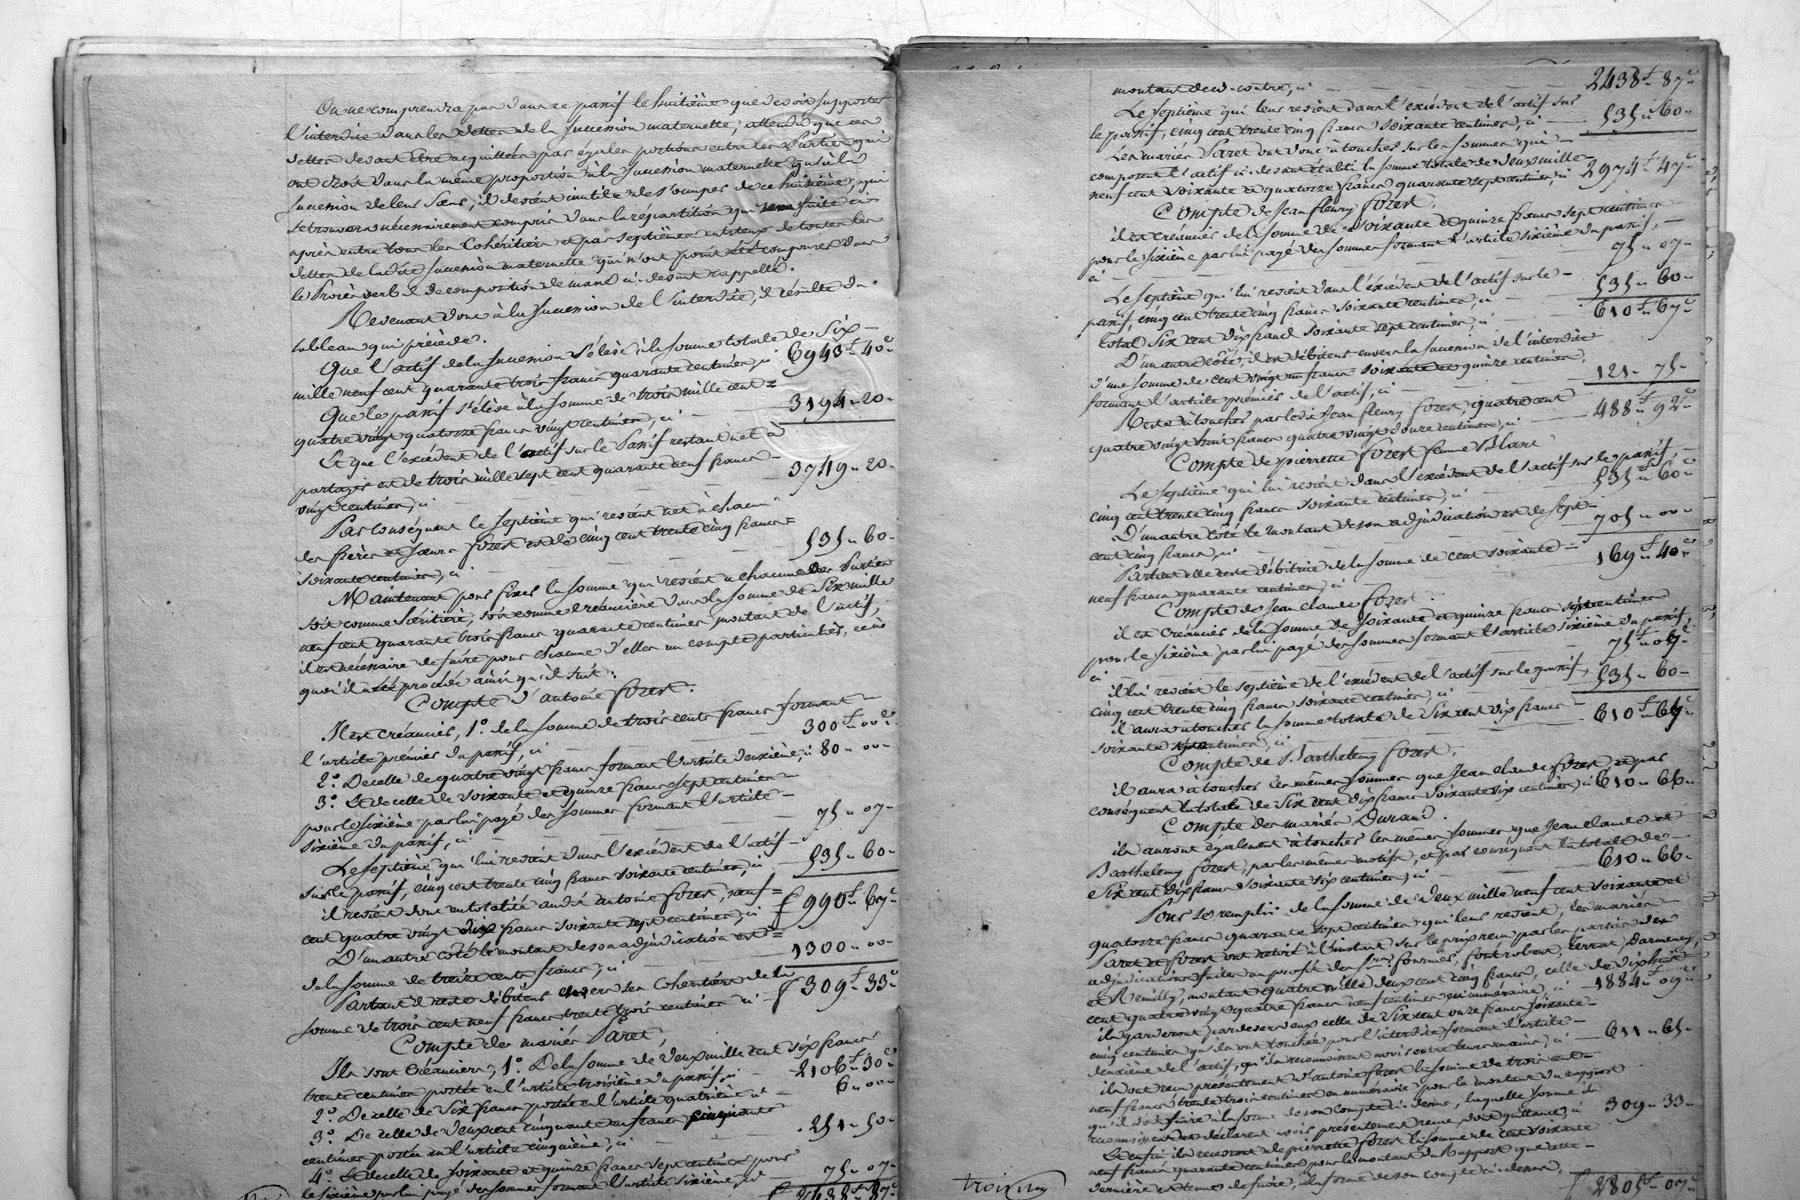 On ne comprendra pas dans ce passif le huitième que devoit supporter
l'interdite dans les dettes de la succession maternelle, attendu que ces
dettes devant être acquittées par égales portions entre les Parties qui
ont droit dans la même proportion à la succession maternelle qu'à la
succession de leur sœur, il devient inutile de s'occuper de ce huitième, qui
se trouvera nécessairement compris dans la répartition qui sera faite ci
après entre tous les Cohéritiers et par septièmes entr'eux de toutes les
dettes de ladite succession maternelle qui n'ont point été comprises dans
le Procès verbal de composition de masse ci-devant rappellé.
Revenant donc à la succession de l'interdite, il résulte du
tableau qui précède.
Que l'actif de la succession s'élève à la somme totale de Six
mille neuf cent quarante trois francs quarante centimes, ci 6943f 40c
Que le passif s'élève à la somme de trois mille cent
quatre vingt quatorze francs vingt centimes, ci 3194 " 20
Et que l'excédent de l'actif sur le Passif restant net à
partager est de trois mille sept cent quarante neuf francs
vingt centimes, ci 3749 " 20
Par conséquent le septième qui revient net à chacun
des frères et sœurs forest est de cinq cent trente cinq francs
soixante centimes, ci 535 " 60
Maintenant pour fixer la somme qui revient à chacune des Parties
soit comme héritière, soit comme créancière dans la somme de Six mille
neuf cent quarante trois francs quarante centimes montant de l'actif,
il est nécessaire de faire pour chacune d'elles un compte particulier, ce à
quoi il a été procédé ainsi qu'il suit:
Compte d'antoine forest.
Il est créancier, 1o. de la somme de trois cents francs formant
l'article premier du passif, ci 300f 00c
2o. De celle de quatre vingt francs formant l'article deuxième, ci 80 " 00
3o. Et de celle de soixante et quinze francs sept centimes
pour le sixième par lui payé des sommes formant l'article
sixième du passif, ci 75 " 07
Le septième qui lui revient dans l'excédent de l'actif
sur le passif, cinq cent trente cinq francs soixante centimes, ci 535 " 60
il revient donc en totalité audit antoine forest, neuf
cent quatre vingt dix francs soixante sept centimes, ci 990f 67c
D'un autre côté le montant de son adjudication est
de la somme de treize cents francs, ci 1300 " 00
Partant il reste débiteur envers ses Cohéritiers de la
somme de trois cent neuf francs trente trois centimes ci 309f 33c
Compte des mariés Paret,
Ils sont Créanciers, 1o. De la somme de Deux mille cent six francs
trente centimes portée en l'article troisième du passif, ci 2106f 30c
2o. De celle de Six francs portée en l'article quatrième ci 6 " 00
3o. De celle de Deux cent cinquante un francs cinquante
centimes portée en l'article cinquième, ci 251 " 50
4o. Et de celle de soixante et quinze francs sept centimes pour
le sixième par lui payé des sommes formant l'article sixième, ci 75 " 07
2438f 87c
montant de ci-contre, ci 2438f 87c
Le septième qui leur revient dans l'excédent de l'actif sur
le passif, cinq cent trente cinq francs soixante centimes, ci 535 " 60
Les mariés Paret ont donc à toucher sur les sommes qui
composent l'actif ci-devant établi la somme totale de Deux mille
neuf cent soixante et quatorze francs quarante sept centimes, ci 2974f 47c
Compte de Jean fleury forest.
il est créancier de la somme de soixante et quinze francs sept centimes
pour le sixième par lui payé des sommes formant l'article sixième du passif,
ci 75 " 07
Le septième qui lui revient dans l'excédent de l'actif sur le
passif, cinq cent trente cinq francs soixante centimes, ci 535 " 60
total six cent dix francs soixante sept centimes, ci 610f 67c
D'un autre côté, il est débiteur envers la succession de l'interdite
d'une somme de cent vingt un francs soixante et quinze centimes,
formant l'article premier de l'actif, ci 121 " 75
Reste à toucher par ledit Jean fleury forest, quatre cent
quatre vingt huit francs quatre vingt douze centimes, ci 488f 92c
Compte de pierrette forest femme Blanc
Le septième qui lui revient dans l'excédent de l'actif sur le passif,
cinq cent trente cinq francs soixante centimes, ci 535f 60c
D'un autre côté le montant de son adjudication est de sept
cent cinq francs, ci 705 " 00
Partant elle reste débitrice de la somme de cent soixante
neuf francs quarante centimes, ci 169f 40c
Compte de Jean claude forest.
il est créancier de la somme de soixante et quinze francs sept centimes
pour le sixième par lui payé des sommes formant l'article sixième du passif,
ci 75f 07c
il lui revient le septième de l'excédent de l'actif sur le passif,
cinq cent trente cinq francs soixante centimes, ci 535 " 60
il aura à toucher la somme totale de Six cent dix francs
soixante sept centimes, ci 610f 67c
Compte de Barthelemy forest.
il aura à toucher les mêmes sommes que Jean claude forest et par
conséquent la totale de Six cent dix francs soixante six centimes, ci 610 " 66
Compte des mariés Durand.
ils auront également à toucher les mêmes sommes que Jean claude et
Barthelemy forest, par les mêmes motifs, et par conséquent la totale de
Six cent dix francs soixante six centimes, ci 610 " 66
Pour se remplir de la somme de Deux mille neuf cent soixante et
quatorze francs quarante sept centimes qui leur revient, les mariés
Paret et forest ont retiré à l'instant sur le prix reçu par les parties des
adjudications faites au profit des Srs. fournier, fontrobert, terrat, Darmencey,
et Remilly, montant quatre mille deux cent cinq francs, celle de dix huit
cent quatre vingt quatre francs neuf centimes en numéraire, ci 1884f 09c
ils garderont pardevers eux celle de Six cent onze francs soixante
cinq centimes qu'ils ont touchée pour l'interdite formant l'article
deuxième de l'actif, qu'ils reconnaissent avoir entre leurs mains, ci 611 " 65
ils ont reçu présentement d'antoine forest la somme de trois cent
neuf francs trente trois centimes en numéraire pour le montant du rapport
qu'il doit faire à la forme de son compte ci-dessus, laquelle somme ils
reconnaissent et déclarent avoir présentement reçue, dont quittance, ci 309 " 33
Et enfin ils recevront de pierrette forest la somme de cent soixante
neuf francs quarante centimes pour le montant du Rapport que cette
dernière est tenue de faire, à la forme de son compte ci-dessus,
2805f 07c